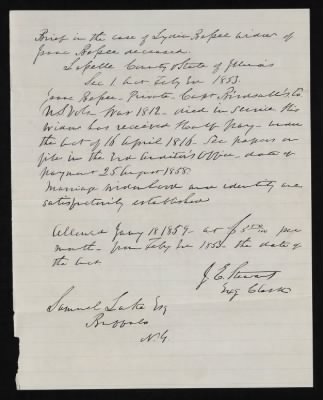 Brief in the case of Lydia Bafee widow of
Isaac Bafee deceased.
Lapelle County State of Illinois
Sec 1 Act Feby 3rd 1853.
Isaac Bafee - Private - Capt Birdsall's Co
U.S. Vols War 1812 - died in service this
widow has received Half pay - under
the act of 16 April 1816. See papers on
file in the 3rd Auditor's Office, date of
payment 25 August 1858.
Marriage widowhood and identity are
satisfactorily established
Allowed Jany 18 1859 - at $ per
month - from Feby 3rd 1853. the date of
the act
J. E. Stewart
Exg Clerk
Samuel Lake Esq
Buffalo
N.Y.